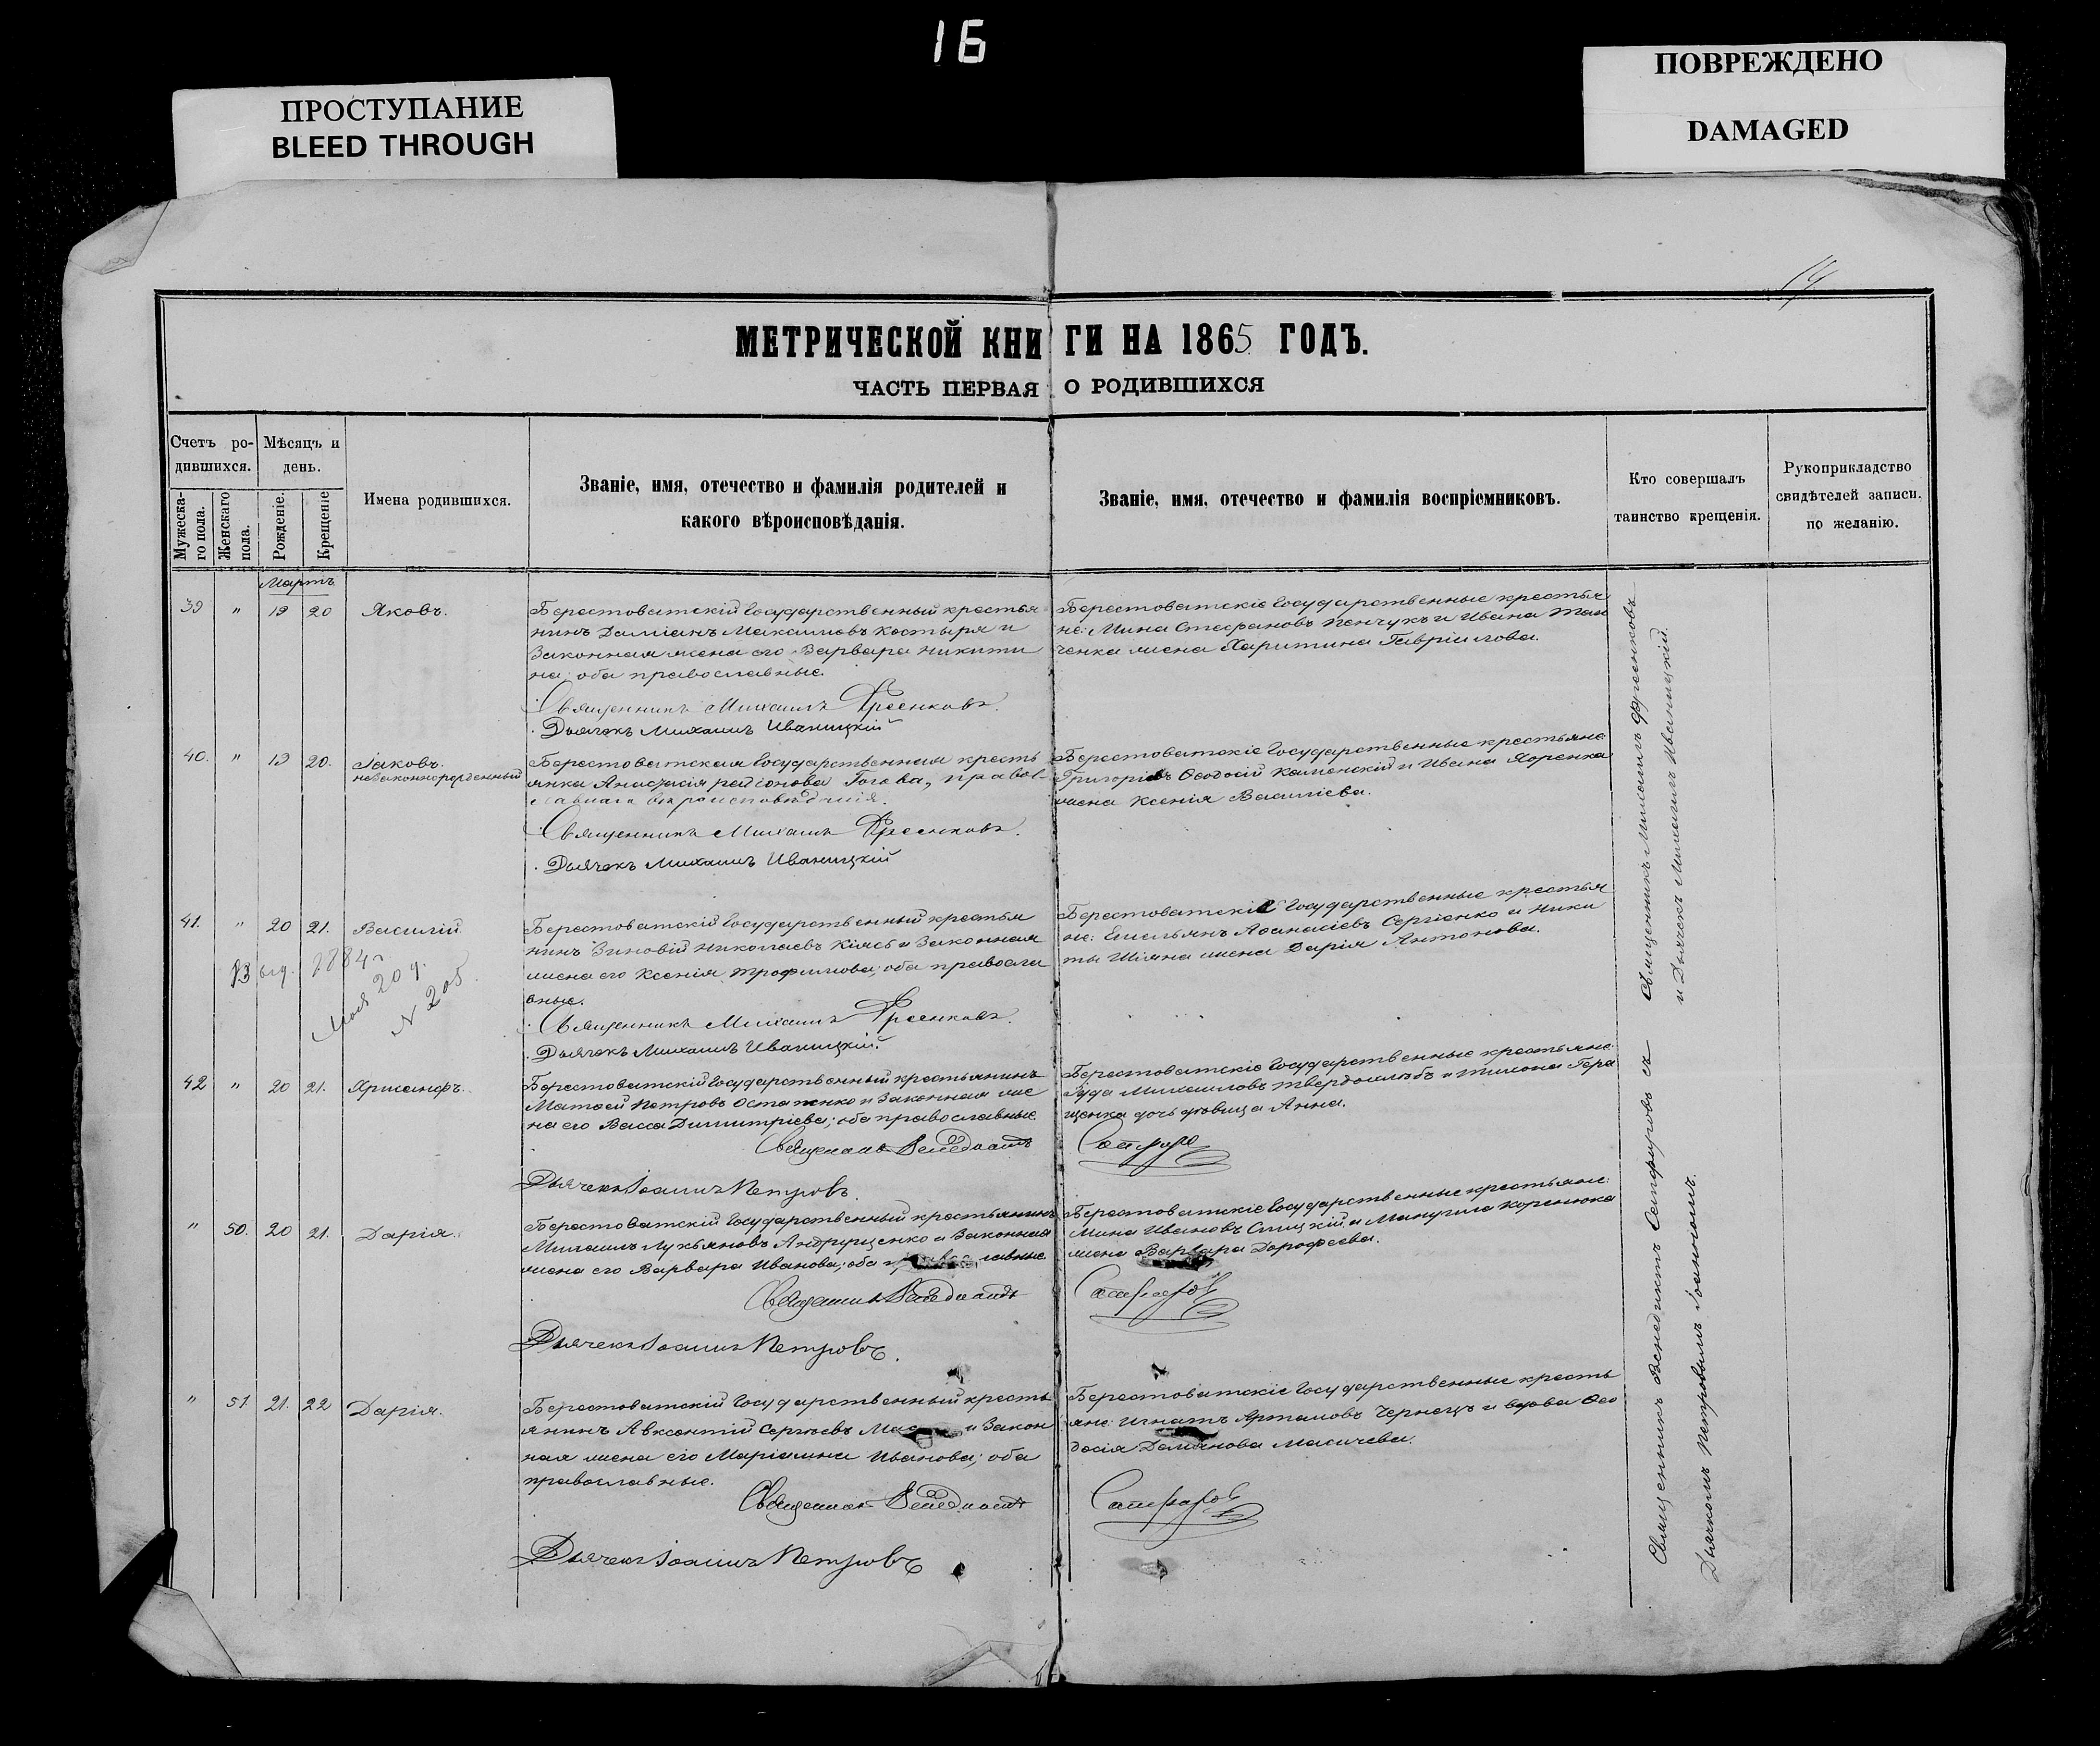 16
ПРОСТУПАНИЕ
BLEED THROUGH
ПОВРЕЖДЕНО
DAMAGED
МЕТРИЧЕСКОЙ КНИГИ НА 1865 ГОДЪ.
ЧАСТЬ ПЕРВАЯ О РОДИВШИХСЯ
Счетъ ро-
дившихся.
Мужеска-
го пола.
Женскаго
пола.
Мѣсяцъ и
день.
Рожденіе.
Крещеніе
Имена родившихся.
Званіе, имя, отечество и фамилія родителей и
какого вѣроисповѣданія.
Званіе, имя, отечество и фамилія воспріемниковъ.
Кто совершалъ
таинство крещенія.
Рукоприкладство
свидѣтелей записи.
по желанію.
Мартъ
39 " 19 20 Яковъ.
Берестоватскій Государственный крестья
нинъ Даміанъ Максимовъ Костыря и
Законная жена его Варвара Никити
на; оба православные.
Священникъ Михаилъ
Дьячокъ Михаилъ Иваницкій
Берестоватскіе Государственные крестья
не: Мина Стефановъ Пенчукъ и Ивана
ченка жена Харитина Гавріилова.
40. " 19 20. Іаковъ.
незаконнорожденный
Берестоватская Государственная кресть
янка Анастасія
вѣроисповѣданія.
Священникъ Михаилъ
Дьячокъ Михаилъ Иваницкій
Берестоватскіе Государственные крестьяне
Ѳеодосій Каменскій и Ивана
жена Ксенія Василіева.
41. " 20 21. Василій
1884
20
N 205
Берестоватскій Государственный крестья
нинъ Зиновій Николаевъ Кіясь и Законная
жена его Ксенія Трофимова; оба правосла
вные.
Священникъ Михаилъ
Дьячокъ Михаилъ Иваницкій.
Берестоватскіе Государственные крестья
не: Емельянъ Аѳанасіевъ Сергіенко и Ники
ты жена Дарія Антонова.
42 " 20 21. Хрисанфъ.
Берестоватскій Государственный крестьянинъ
Матѳей Петровъ Остапенко и Законная же
на его Васса Димитріева; оба православные
Священникъ Венедиктъ Сапфировъ
Дьячекъ Іоаннъ Петровъ.
Берестоватскіе Государственные крестьяне:
Іуда Михаиловъ Твердохлѣбъ и Тимона Гера
щенка дочь дѣвица Анна.
" 50. 20 21. Дарія.
Берестоватскій Государственный крестьянинъ
Михаилъ Лукьяновъ Андрущенко и Законная
жена его Варвара Иванова; оба православные
Священникъ Венедиктъ Сапфировъ
Дьячекъ Іоаннъ Петровъ.
Берестоватскіе Государственные крестьяне:
Мина Ивановъ и Мануила Коренюка
жена Варвара Дорофеева.
" 51 21. 22 Дарія.
Берестоватскій Государственный кресть
янинъ Авксентій Сергѣевъ и Закон
ная жена его Маріамна Иванова; оба
православные.
Священникъ Венедиктъ Сапфировъ
Дьячекъ Іоаннъ Петровъ
Берестоватскіе Государственные кресть
яне: Игнатъ Артамовъ Чернецъ и вдова Ѳео
досія Даміанова Масичева.
Священникъ Михаилъ
и Дьячокъ Михаилъ Иваницкій.
Священникъ Венедиктъ Сапфировъ съ
Дьячкомъ Петровымъ Іоанномъ.